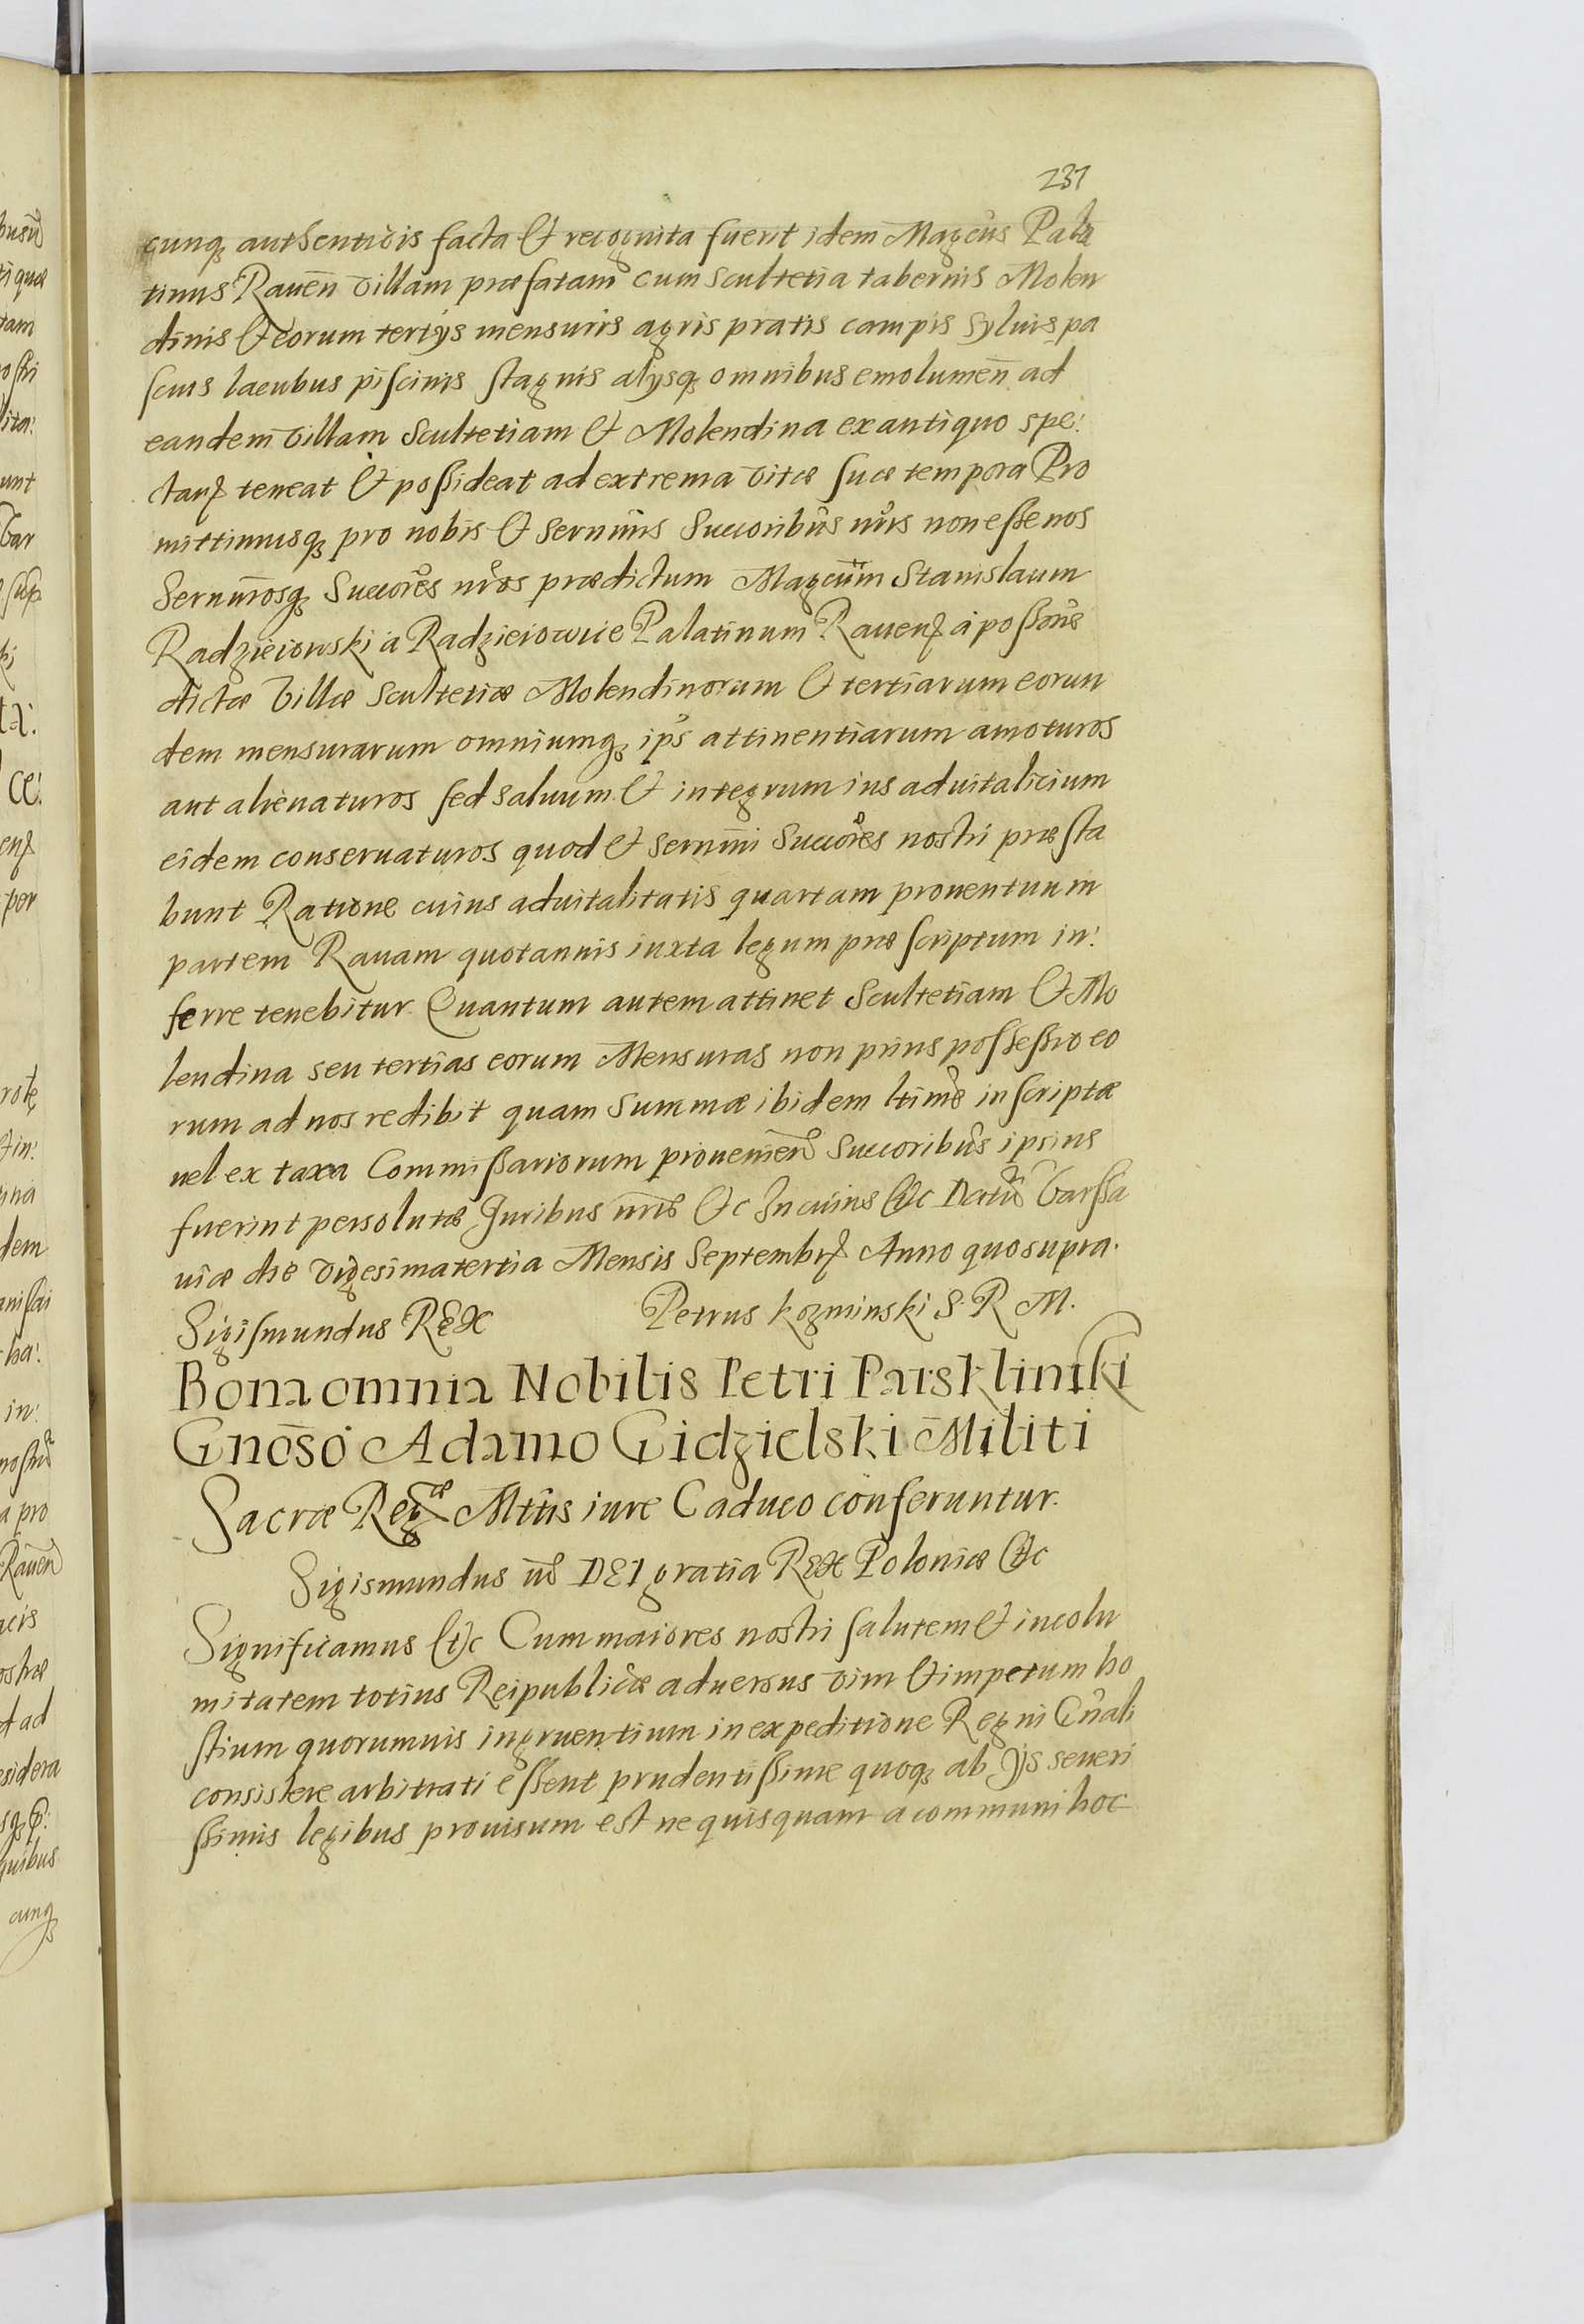 231
cunq₃ authenticis facta & recognita fuerit idem Mag̃cus Pala
tinus Raueñ villam præfatam cum Scultetia tabernis Molen
dinis & eorum tertijs mensuris agris pratis campis syluis pa
scuis lacubus piscinis stagnis alijsq₃ omnibus emolumeñ ad
eandem villam Scultetiam & Molendina ex antiquo spe:
ctanƺ teneat & possideat ad extrema vitæ suæ tempora Pro
mittimusq₃ pro nobis & Sernimis Succoribus nr̃is non esse nos
Sernimosq₃ Succores nr̃os prædictum Mag̃cum Stanislaum
Radzieiowski à Radzieiowice Palatinum Rauenƺ à possõne
dictæ villæ Scultetiæ Molendinorum & tertiarum eorun
dem mensurarum omniumq₃ ip̃s attinentiarum amoturos
aut alienaturos sed saluum & integrum ius aduitalicium
eidem conseruaturos quod & Sernimi Succores nostri præsta
bunt Ratione cuius aduitalitatis quartam prouentuum
partem Rauam quotannis iuxta legum præscriptum in:
ferre tenebitur. Quantum autem attinet Scultetiam & Mo
lendina seu tertias eorum Mensuras non prius possessio eo
rum ad nos redibit quam summæ ibidem ltimẽ inscriptæ
uel ex taxa Commissariorum prouenieñ Succoribus ipsius
fuerint persolutæ Juribus nr̃is &c In cuius &c Datũ Varssa
uiæ die vigesima tertia Mensis Septembrƺ Anno quo supra.
Sigismundus REX Petrus Kozminski S. R M.
Bona omnia Nobilis Petri Parskliniski
Gnõso Adamo Gidzielski Militi
Sacræ Regæ Mttis iure Caduco conferuntur.
Sigismundus iii DEI gratia REX Poloniæ &c
Significamus &c Cum maiores nostri salutem & incolu
mitatem totius Reipublicæ aduersus vim & impetum ho
stium quorumuis ingruentium in expeditione Regni Gñali
consistere arbitrati essent prudentissime quoq₃ ab ijs seueri
ssimis legibus prouisum est ne quisquam a communi hoc